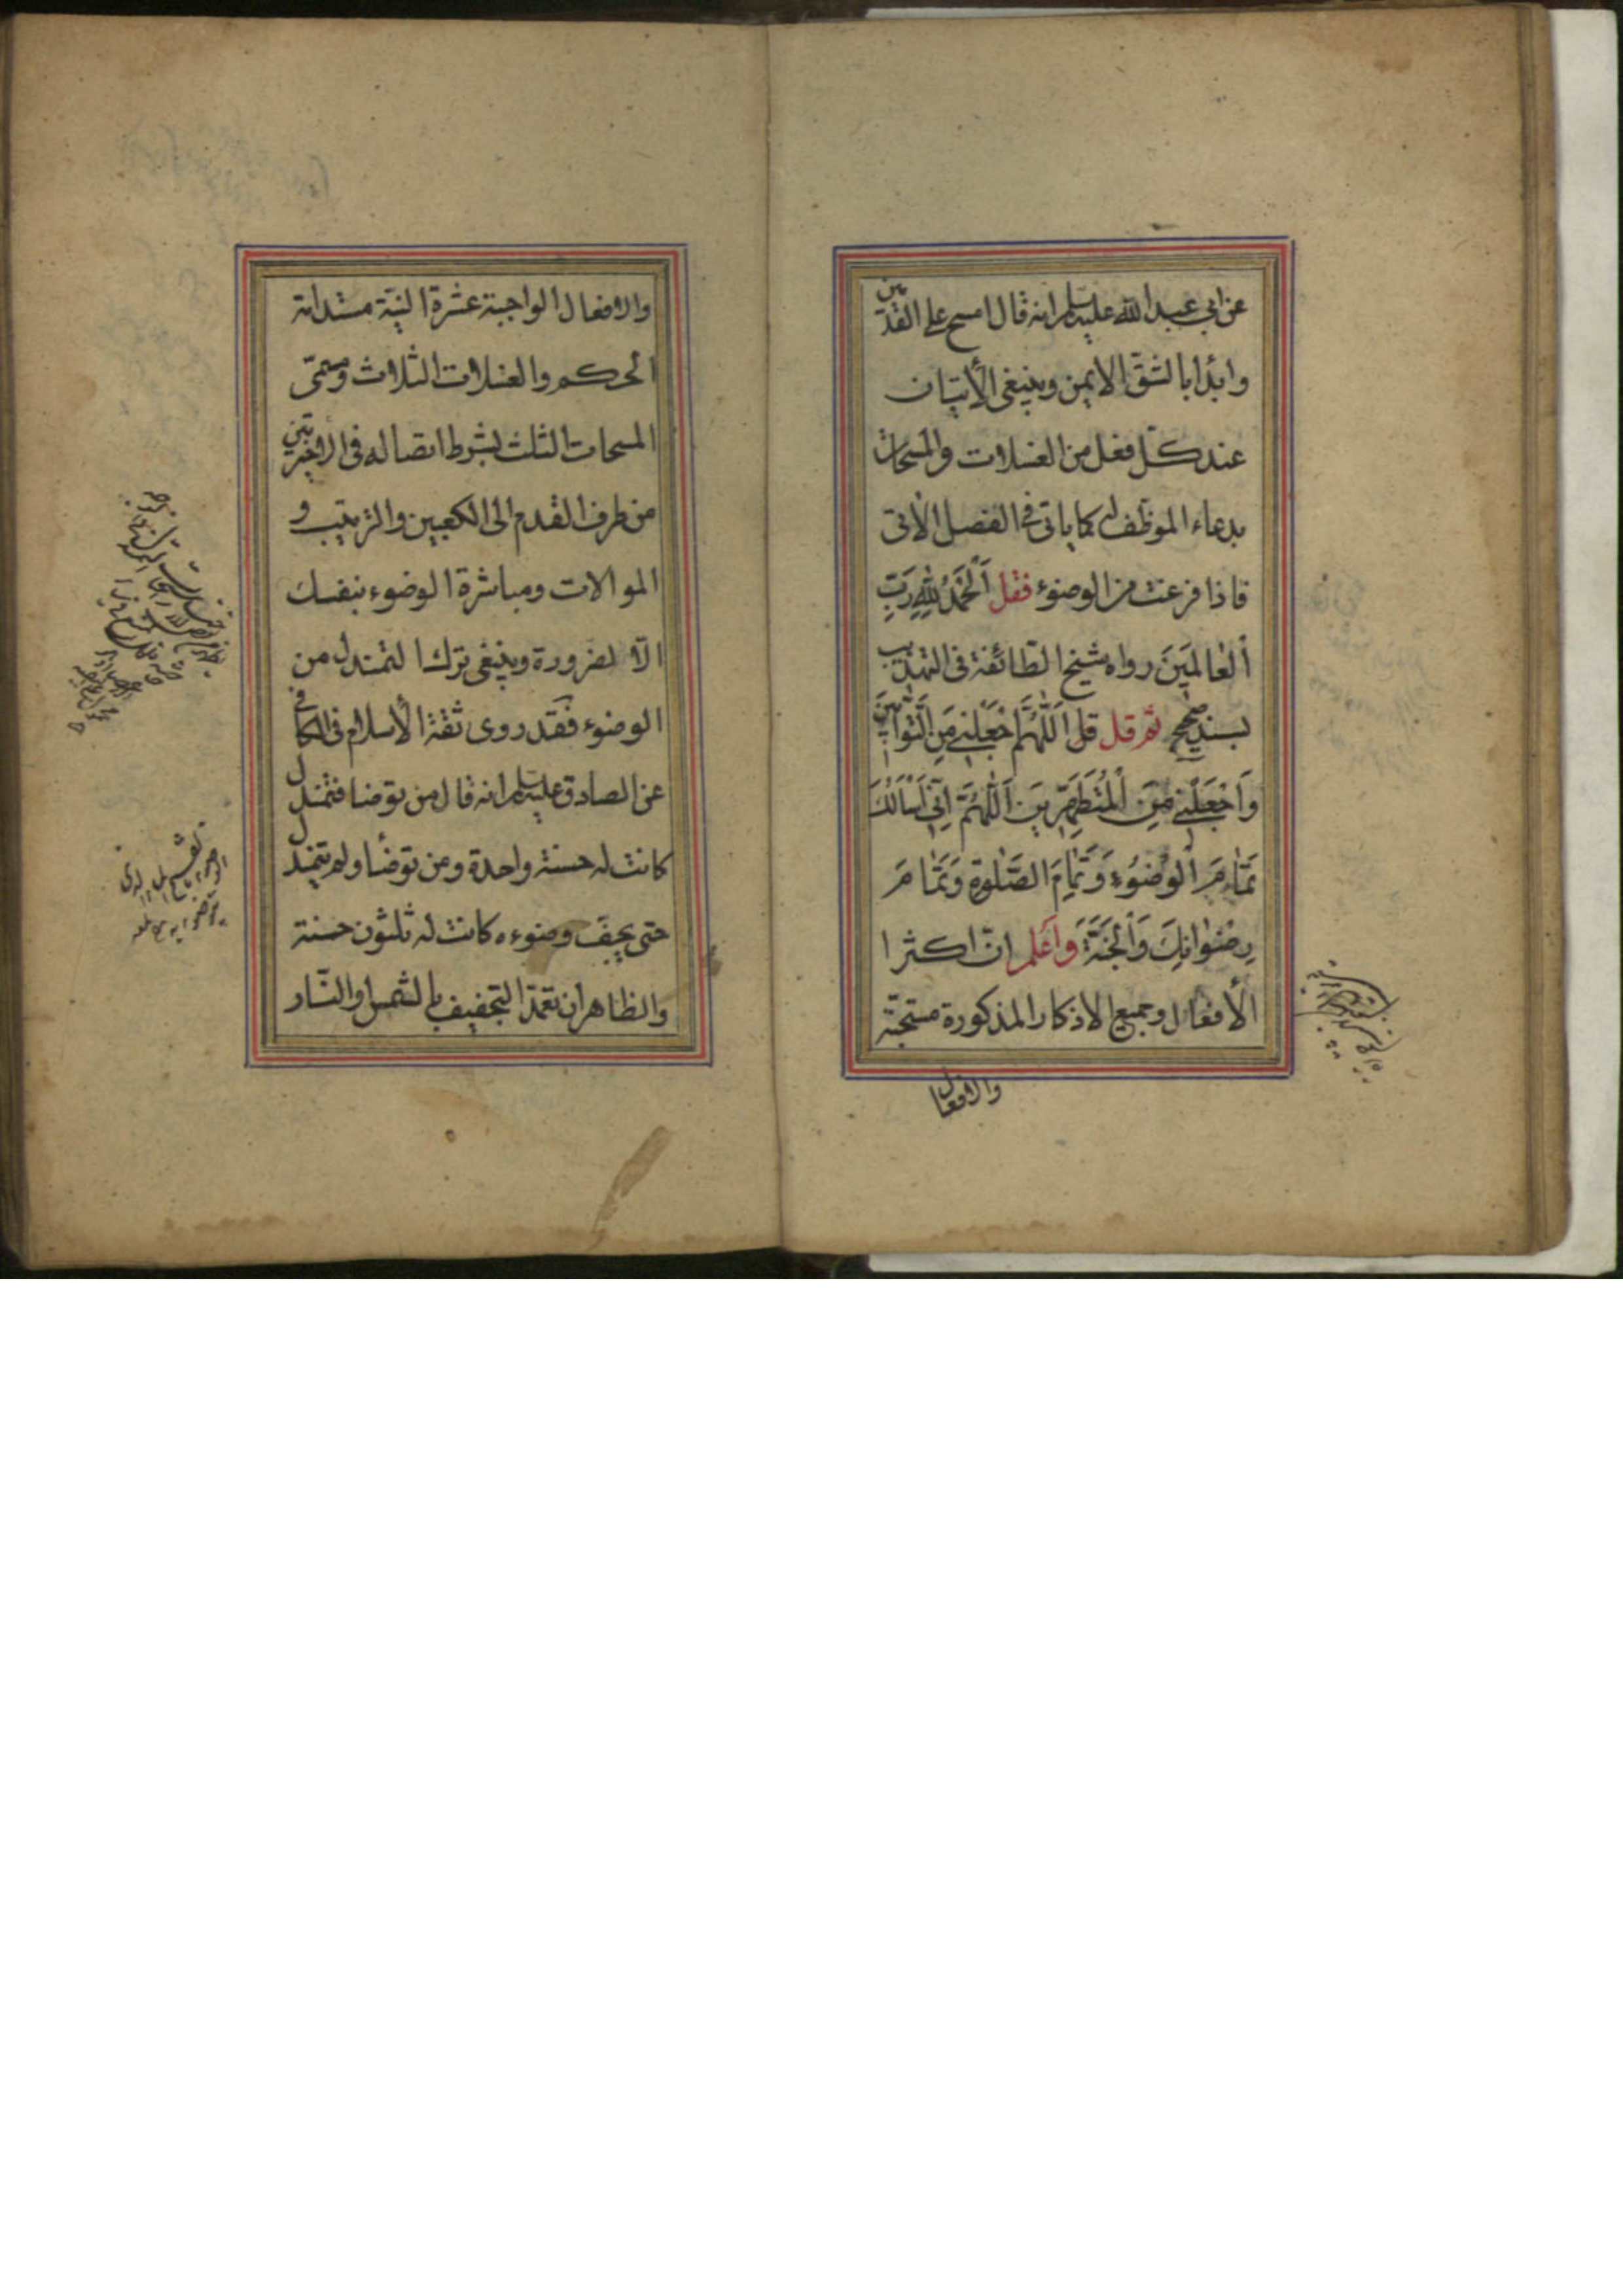 عن ابي عبد الله عليه السلم انه قال امسح على القدمين
وابدا بالشق الايمن وينبغي الأتيان
عند كل فعل من الغسلات والمسحات
بدعاء الموظف له كما ياتي في الفصل الأتي
فاذا فرغت من الوضوء فقل اَلْحَمْدُ لِلّهِ رَبِّ
اْلعٰالَمِيَنَ رواه شيخ الطائفة في التهذيب
بسند صحيح ثم قل اَللّٰهُمَّ اجْعَلْنِي مِنَ التَّوّٰابِينَ
وَاجْعَلْنِي مِنَ اْلمُتَطَهِّرِينَ اَللّٰهُمَّ اِنّي اَسْاَلُكَ
تَمٰامَ اْلوُضُوءِ وَتَمٰامَ الصَّلٰوةِ وَتَمٰامَ
رِضْوٰانِكَ وَاْلجَنَّةَ وَاعلم ان اكثر ا
لأفعال وجميع الاذكار المذكورة مستحبة
والافعال
والافعال الواجبة عشرة النية مستدامة
الحكم والغسلات الثلاث ومسمى
المسحات الثلث بشرط اتصاله في الاخيرتين
من طرف القدم الى الكعبين والترتيب و
الموالات ومباشرة الوضوء بنفسك
الا لضرورة وينبغي ترك التمندل من
الوضوء فقد روى ثقة الأسلام في الكافي
عن الصادق عليه السلم انه قال من توضا فتمندل
كانت له حسنة واحدة ومن توضأ ولم يتمندل
حتى يجف وضوءه كانت له ثلثون حسنة
والظاهر ان تعمد التجفيف بالشمس او النار